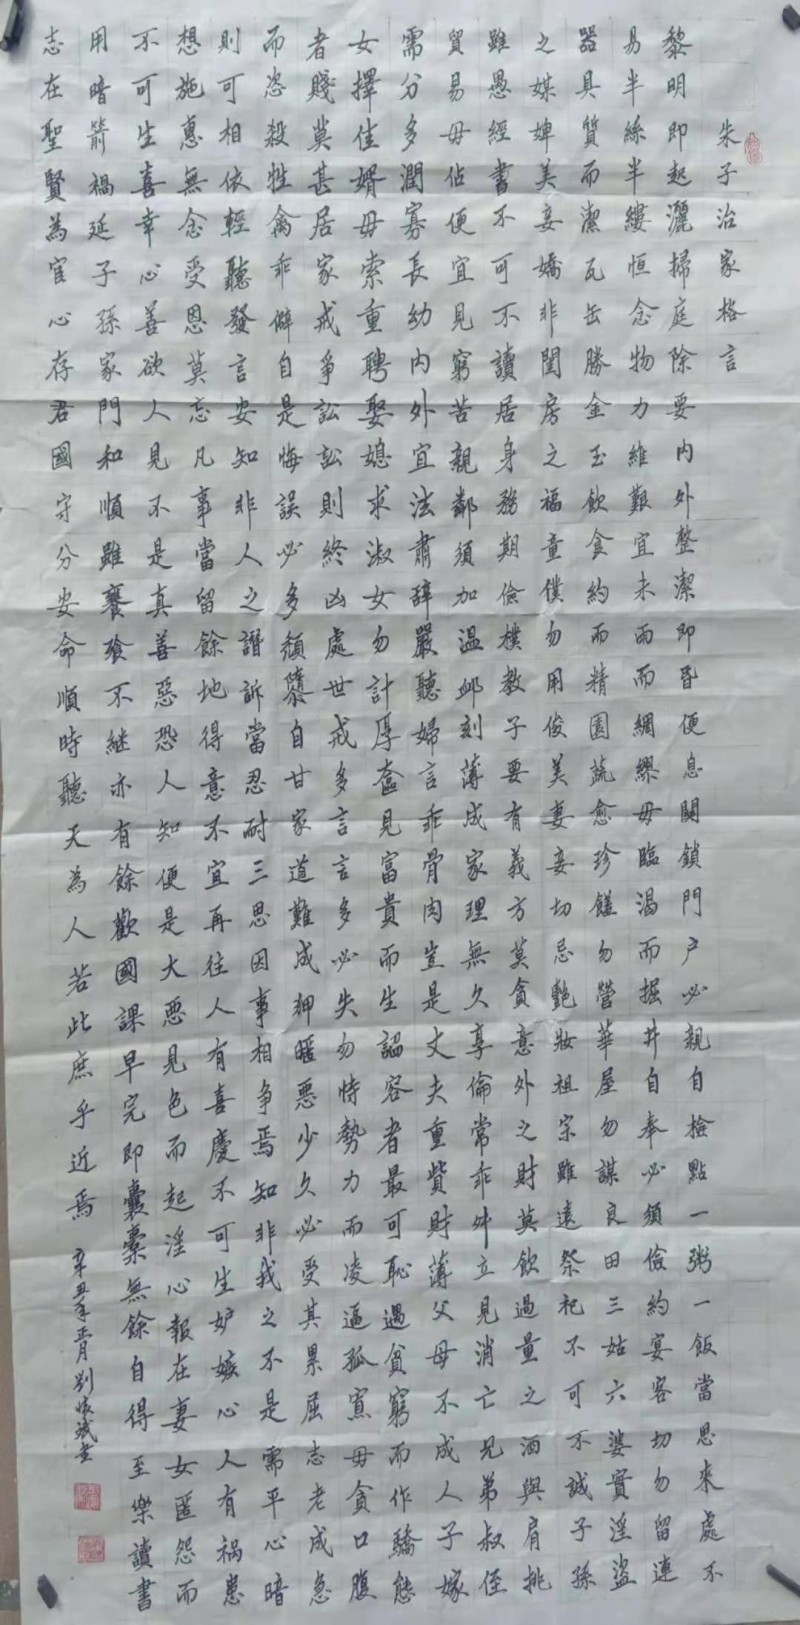 朱子治家格言
黎明即起灑掃庭除要內外整潔即昏便息關鎖門戶必親自檢點一粥一飯當思來處不
易半絲半縷恒念物力維艱宜未雨而綢繆毋臨渴而掘井自奉必須儉約宴客切勿留連
器具質而潔瓦缶勝金玉飲食約而精園蔬愈珍饈勿營華屋勿謀良田三姑六婆實淫盜
之媒婢美妾嬌非閨房之福童僕勿用俊美妻妾切忌艷妝祖宗雖遠祭祀不可不誠子孫
雖愚經書不可不讀居身務期儉樸教子要有義方莫貪意外之財莫飲過量之酒與肩挑
貿易毋佔便宜見窮苦親鄰須加溫卹刻薄成家理無久享倫常乖舛立見消亡兄弟叔侄
需分多潤寡長幼內外宜法肅辭嚴聽婦言乖骨肉豈是丈夫重貲財薄父母不成人子嫁
女擇佳婿毋索重聘娶媳求淑女勿計厚奩見富貴而生諂容者最可恥遇貧窮而作驕態
者賤莫甚居家戒爭訟訟則終凶處世戒多言言多必失勿恃勢力而凌逼孤寡毋貪口腹
而恣殺牲禽乖僻自是悔誤必多頹隳自甘家道難成狎暱惡少久必受其累屈志老成急
則可相依輕聽發言安知非人之譖訴當忍耐三思因事相爭焉知非我之不是需平心暗
想施惠無念受恩莫忘凡事當留餘地得意不宜再往人有喜慶不可生妒嫉心人有禍患
不可生喜幸心善欲人見不是真善惡恐人知便是大惡見色而起淫心報在妻女匿怨而
用暗箭禍延子孫家門和順雖饔飧不繼亦有餘歡國課早完即囊橐無餘自得至樂讀書
志在聖賢為官心存君國守分安命順時聽天為人若此庶乎近焉
辛丑年正月